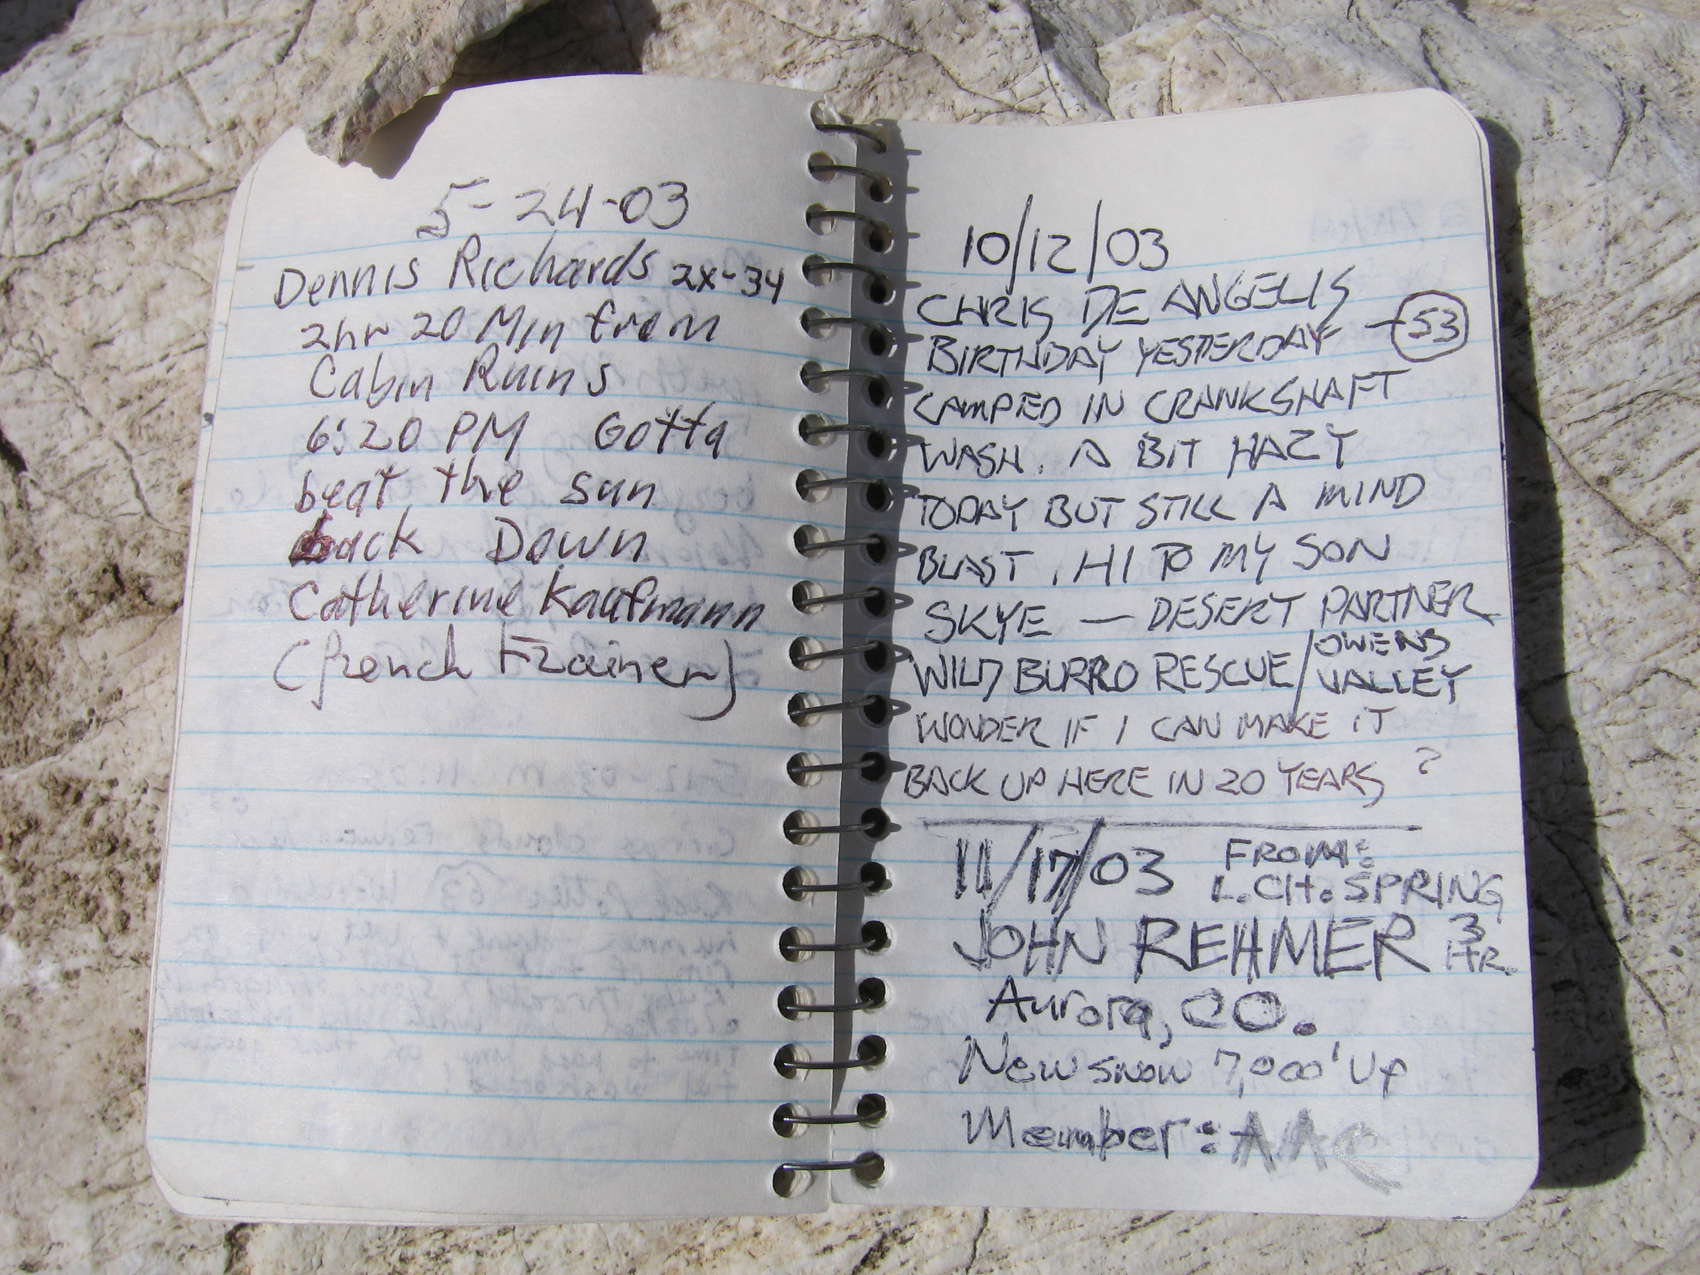 5-24-03
Dennis Richards 2x-34
2hr 20 Min from
Cabin Ruins
6:20 PM Gotta
beat the sun
back Down
Catherine Kaufmann
(french trainer)
10/12/03
CHRIS DE ANGELIS
BIRTHDAY YESTERDAY - 53
CAMPED IN CRANKSHAFT
WASH. A BIT HAZY
TODAY BUT STILL A MIND
BLAST. HI TO MY SON
SKYE — DESERT PARTNER
WILD BURRO RESCUE/OWENS VALLEY
WONDER IF I CAN MAKE IT
BACK UP HERE IN 20 YEARS ?
11/17/03 FROM:
L.CH. SPRING
JOHN REHMER 3 HR.
Aurora, CO.
New snow 7,000' Up
Member: AAC